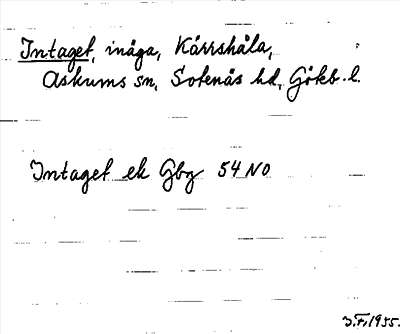 Intaget, inåga, Kårrshåla,
Askums sn, Sotenäs hd, Gökb. l.
Intaget ek Gbg 54 NO
J.F. 1955.